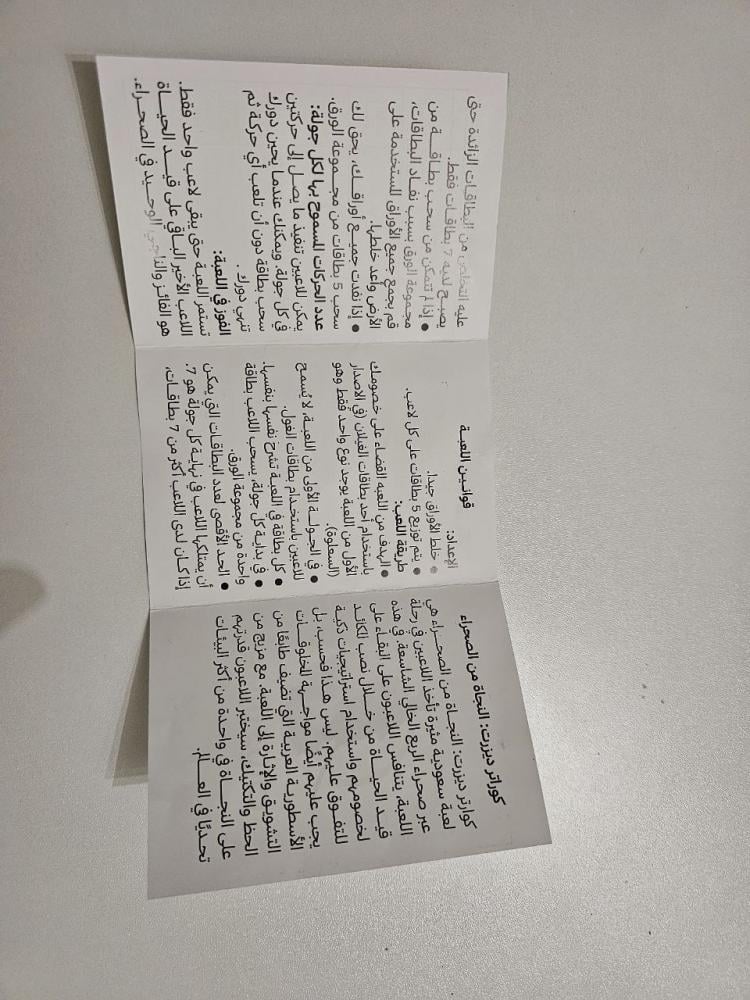 كوراتر ديزرت: النجاة من الصحراء
كوارتر ديزرت: النجـاة من الصحـراء هي
لعبة سعودية مثيرة تأخذ اللاعبين في رحلة
عبر صحراء الربع الخالي الشاسعة. في هذه
اللعبة، يتنافس اللاعبون على البقـاء على
قيـد الحيـاة من خــلال نصب المكائـد
لخصومهم واستخدام استراتيجيات ذكيـة
للتفـوق عليـهم. ليس هـذا فحسب، بل
يجب عليهم أيضًا مواجـهة المخلوقـات
الأسطورية العربيـة التي تضيف طابعًا من
التشويـق والإثـارة إلى اللعبة. مع مزيج من
الحظ والتكتيك، سيختبر اللاعبون قدرتهم
على النجـاة في واحدة من أكثر البيئات
تحديًا في العــالم.
قوانـين اللعبـة
الإعداد:
● خلط الأوراق جيدا.
● يتم توزيع 5 بطاقات على كل لاعب.
طريقة اللعب:
● الهدف من اللعبه القضاء على خصومك
باستخدام أحد بطاقات الغيلان (في الاصدار
الأول من اللعبة يوجد نوع واحد فقط وهو
(السعلوة).
● في الجولـة الأولى من اللعبـة، لا يُسمح
للاعبين باستخـدام بطاقات الغول.
● كل بطاقة في اللعبـة تشرح نفسها بنفسها.
● في بدايـة كل جولة، يسحب اللاعب بطاقة
واحدة من مجموعة الورق.
● الحـد الأقصى لعدد البطاقـات التي يمكن
أن يمتلكها اللاعب في نهاية كل جولة هو 7.
إذا كـان لدى اللاعب أكثر من 7 بطاقـات،
عليه التخلص من البطاقـات الزائدة حتى
يصبـح لديه 7 بطاقـات فقط.
● إذا لم تتمكن من سحب بطاقــة من
مجموعة الورق بسبب نفـاد البطاقـات،
قم بجمع جميع الأوراق المستخدمة على
الأرض وأعد خلطها.
● إذا نفدت جميـع أوراقــك، يحق لك
سحب 5 بطاقات من مجـموعة الورق.
عدد الحركات المسموح بها لكل جولة:
يمكن للاعبين تنفيذ ما يصـل إلى حركتين
في كل جولة. ويمكنك عندما يحين دورك
سحب بطاقة دون أن تلعب أي حركة ثم
تنهي دورك .
الفوز في اللعبة:
تستمر اللعبة حتى يبقى لاعب واحد فقط.
اللاعب الأخير البـاقي على قيـد الحيـاة
هو الفائـز والناجي الوحيـد في الصحـراء.